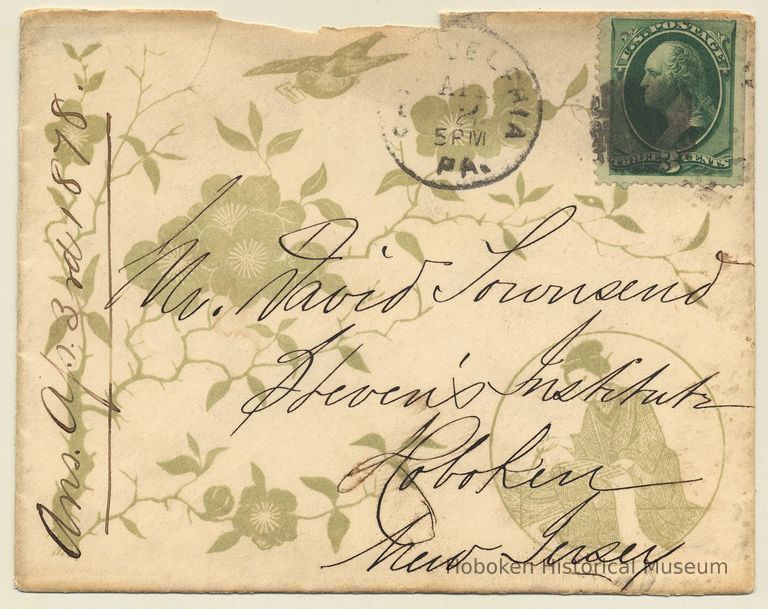 PHILADELPHIA
AP
5 PM
PA.
U.S. POSTAGE
THREE 3 CENTS
Mr. David Townsend
Steven's Institute
Hoboken
New Jersey
Ans. Ap. 3rd 1878.
Hoboken Historical Museum